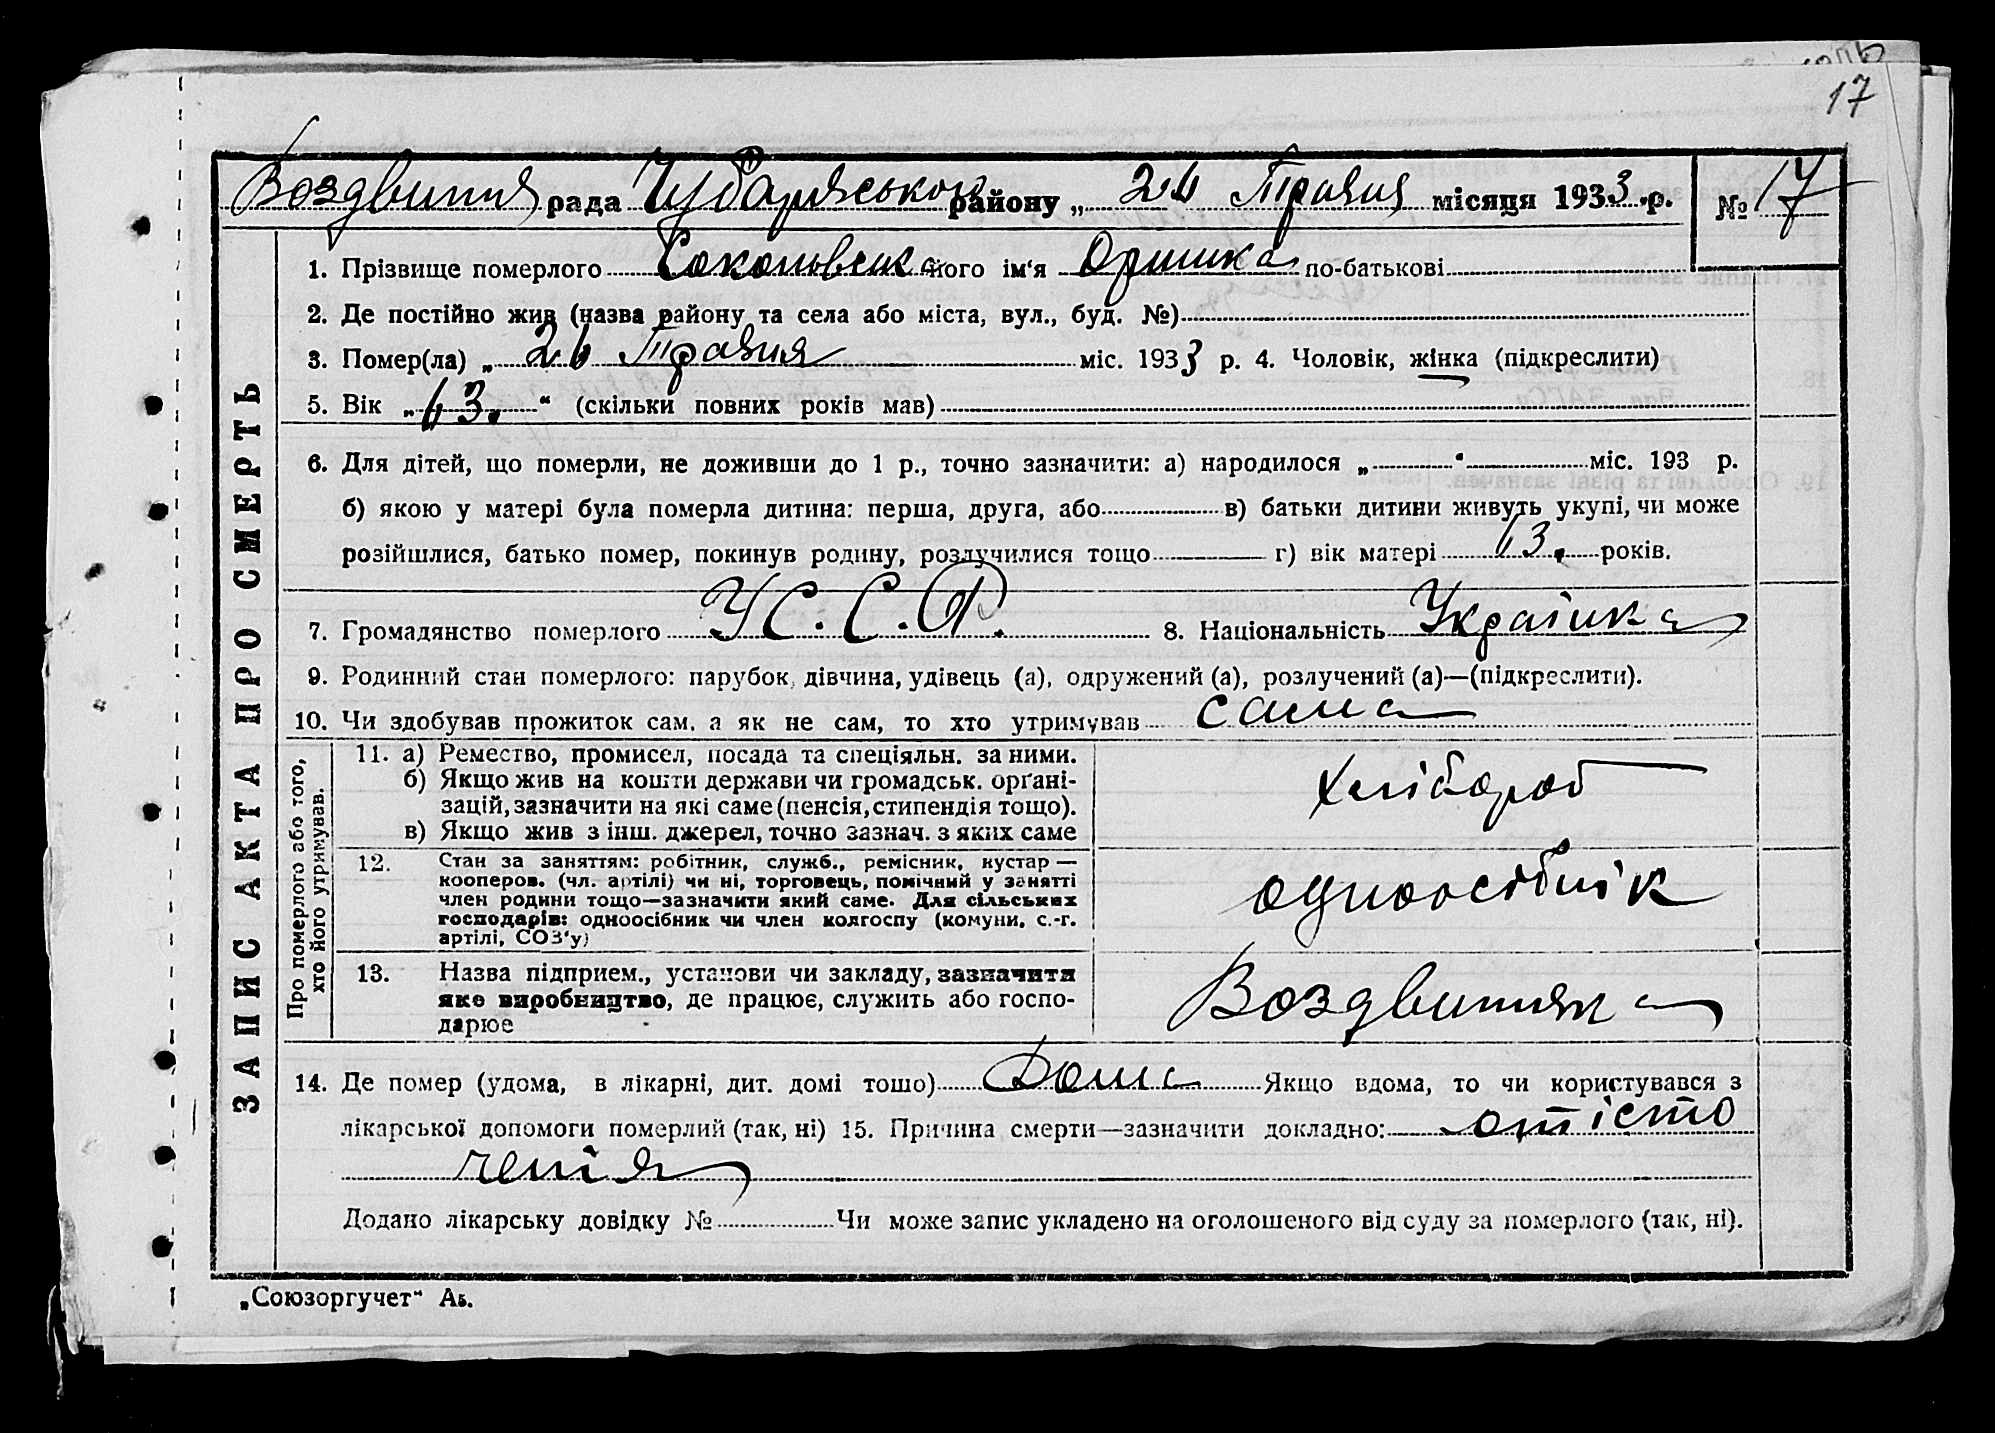 17
Воздвиння рада Чубарівського району „ 26 Травня місяця 1933 р. № 17
ЗАПИС АКТА ПРО СМЕРТЬ
1. Прізвище померлого Соколовська його ім'я Оришка по-батькові
2. Де постійно жив (назва району та села або міста, вул., буд. №)
3. Помер(ла) „ 26 Травня міс. 1933 р. 4. Чоловік, жінка (підкреслити)
5. Вік „ 63. “ (скільки повних років мав)
6. Для дітей, що померли, не доживши до 1 р., точно зазначити: а) народилося „ “ міс. 193 р.
б) якою у матері була померла дитина: перша, друга, або в) батьки дитини живуть укупі, чи може
розійшлися, батько помер, покинув родину, розлучилися тощо г) вік матері 63. років.
7. Громадянство померлого У.С.С.Р. 8. Національність Українка
9. Родинний стан померлого: парубок, дівчина, удівець (а), одружений (а), розлучений (а)—(підкреслити).
10. Чи здобував прожиток сам, а як не сам, то хто утримував сама
Про померлого або того,
хто його утримував.
11. а) Ремество, промисел, посада та спеціяльн. за ними.
б) Якщо жив на кошти держави чи громадськ. орґані-
зацій, зазначити на які саме (пенсія, стипендія тощо).
в) Якщо жив з інш. джерел, точно зазнач. з яких саме
хлібороб
12. Стан за заняттям: робітник, служб., ремісник, кустар —
кооперов. (чл. артілі) чи ні, торговець, помічний у занятті
член родини тощо—зазначити який саме. Для сільських
господарів: одноосібник чи член колгоспу (комуни, с.-г.
артілі, СОЗ'у)
одноосібнік
13. Назва підприєм., установи чи закладу, зазначити
яке виробництво, де працює, служить або госпо-
дарює
Воздвиняка
14. Де помер (удома, в лікарні, дит. домі тощо) Дома Якщо вдома, то чи користувався з
лікарської допомоги померлий (так, ні) 15. Причина смерти—зазначити докладно: отісто
ченія
Додано лікарську довідку № Чи може запис укладено на оголошеного від суду за померлого (так, ні).
„Союзоргучет“ Аь.